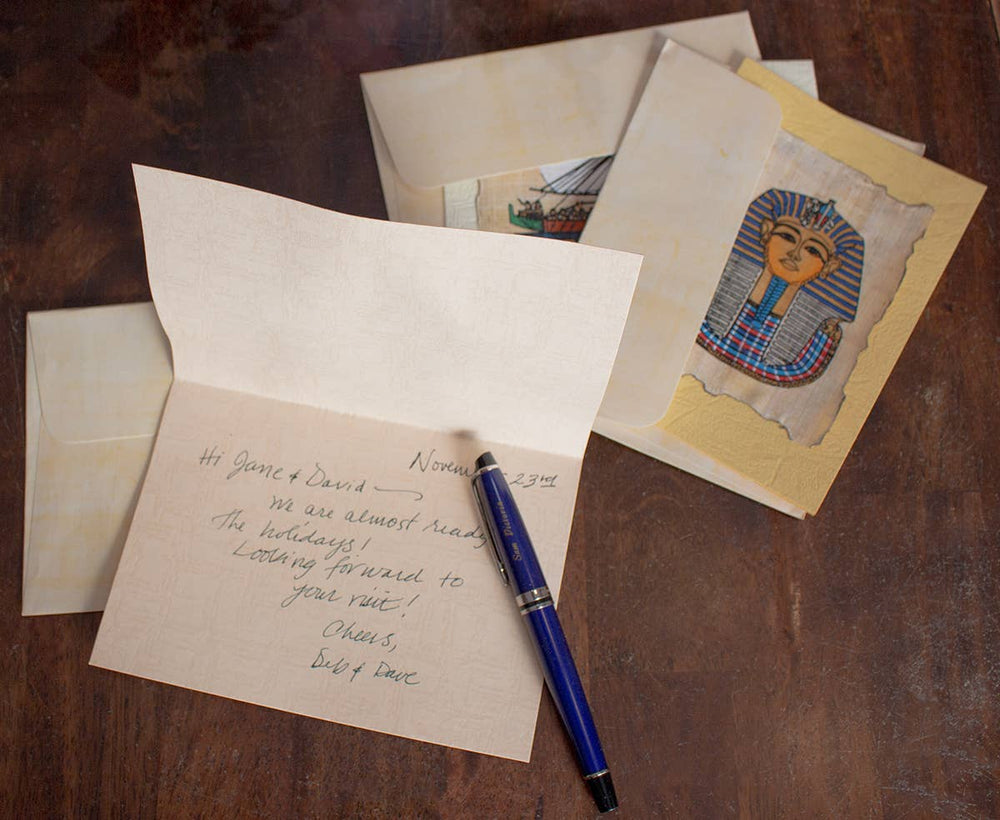 Novem 23rd
Hi Jane & David —
We are almost ready
the holidays!
Looking forward to
your visit!
Cheers,
Deb & Dave
Sam Dickson